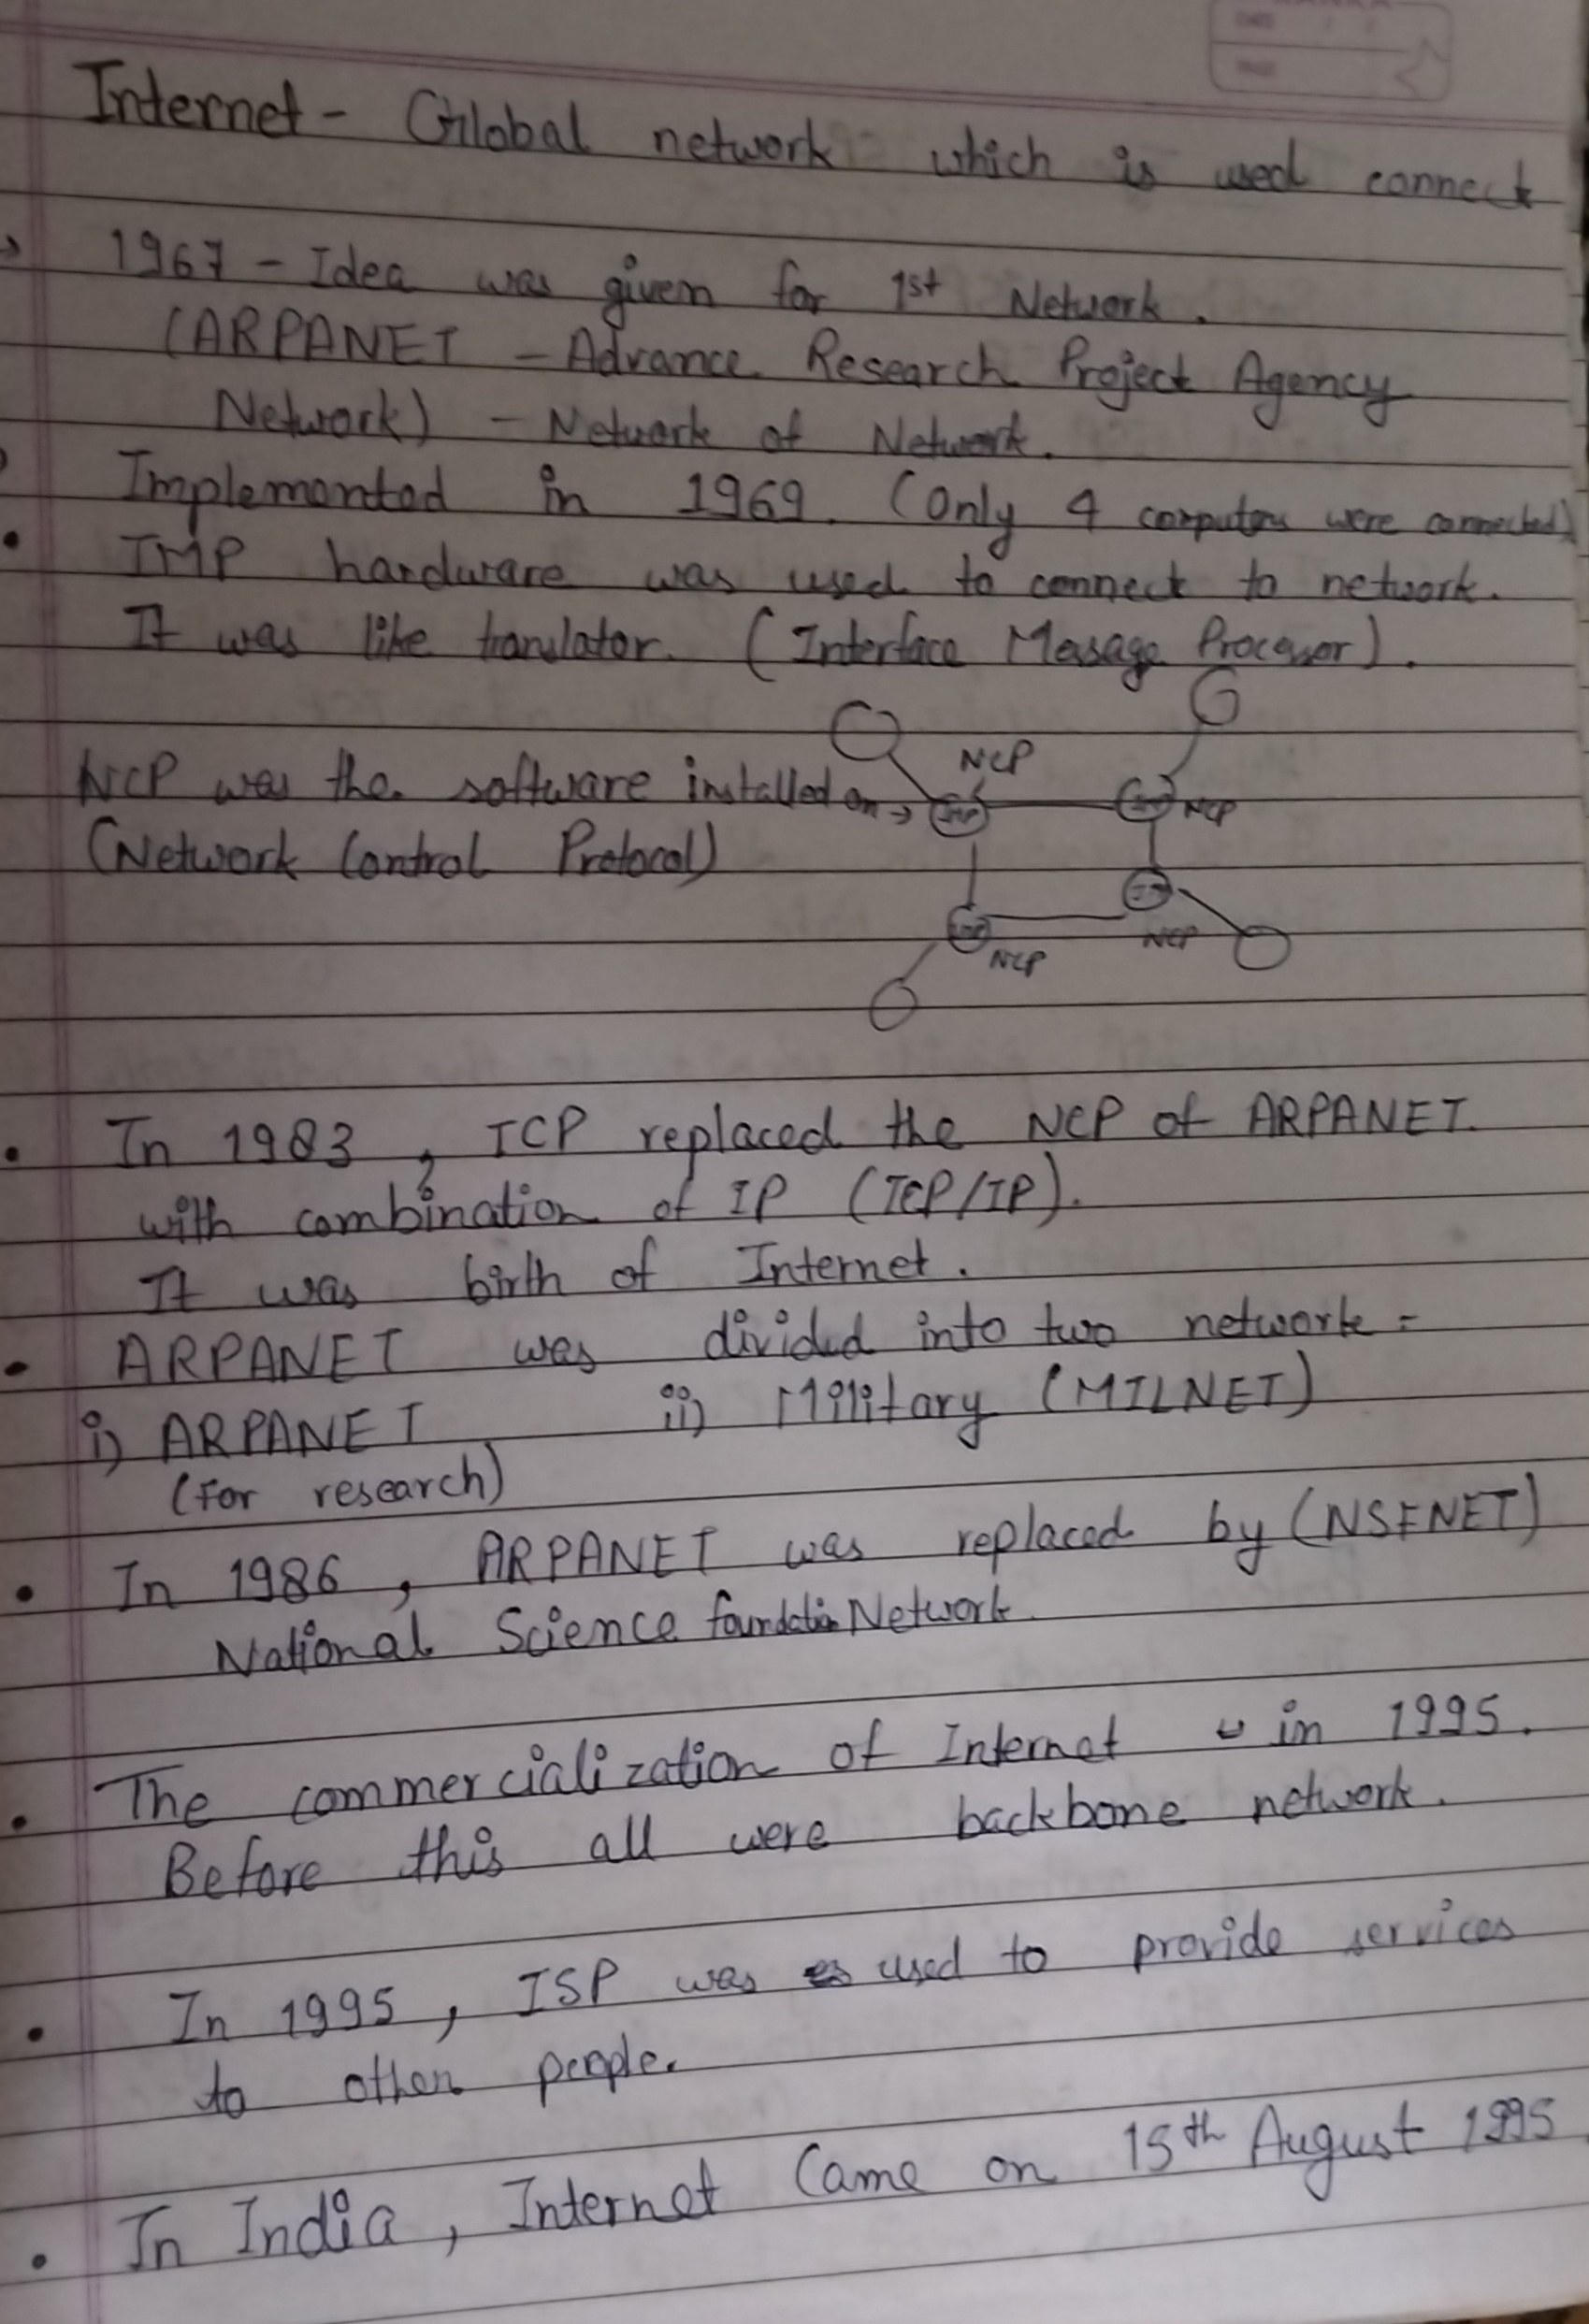 DATE
PAGE
Internet - Global network which is used connect
1967 - Idea was given for 1st Network.
(ARPANET - Advance Research Project Agency
Network) - Network of Network.
Implemented in 1969. (Only 4 computers were connected)
IMP hardware was used to connect to network.
It was like translator. (Interface Message Processor).
NCP was the software installed on →
(Network Control Protocol)
NCP
IMP
IMP
NCP
IMP
IMP
NCP
NCP
• In 1983, TCP replaced the NCP of ARPANET.
with combination of IP (TCP/IP).
It was birth of Internet.
• ARPANET was divided into two network =
i) ARPANET ii) Military (MILNET)
(For research)
• In 1986, ARPANET was replaced by (NSFNET)
National Science foundation Network.
• The commercialization of Internet in 1995.
Before this all were backbone network.
• In 1995, ISP was used to provide services
to other people.
• In India, Internet Came on 15th August 1995